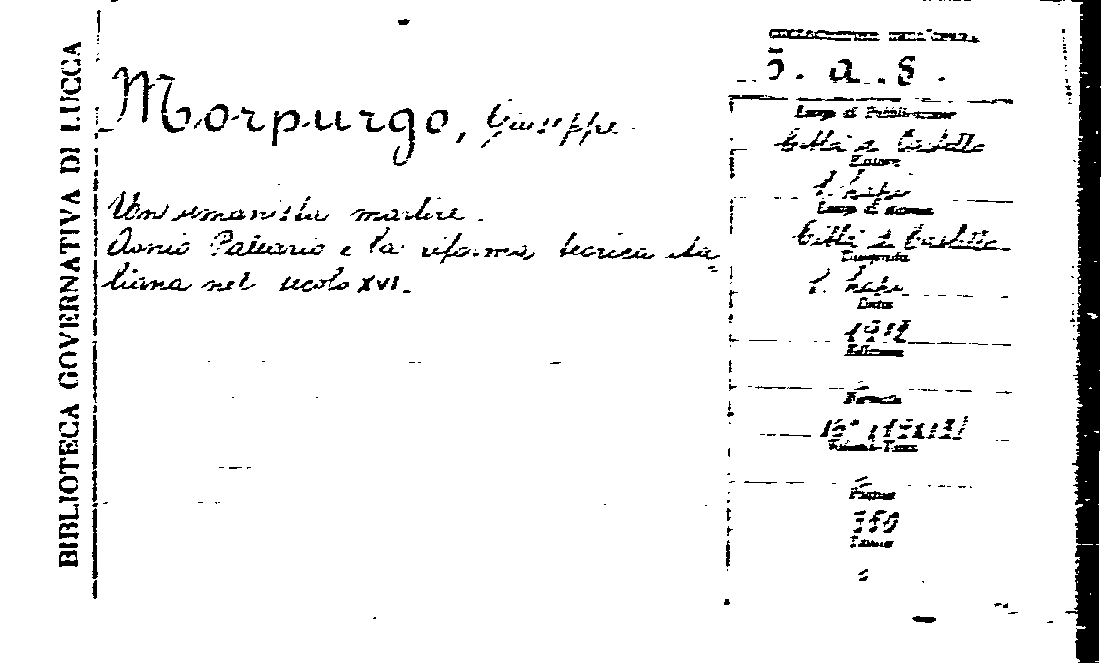 BIBLIOTECA GOVERNATIVA DI LUCCA
Morpurgo, Giuseppe
Un umanista martire.
Aonio Paleario e la riforma teorica ita=
liana nel secolo XVI.
COLLOCAZIONE DELL'OPERA
5. a. 8.
Luogo di Pubblicazione
Città di Castello
Editore
S. Lapi
Luogo di stampa
Città di Castello
Tipografia
S. Lapi
Data
1912
Edizione
Formato
16° (19x13)
Volumi-Tomi
Pagine
350
Tavole